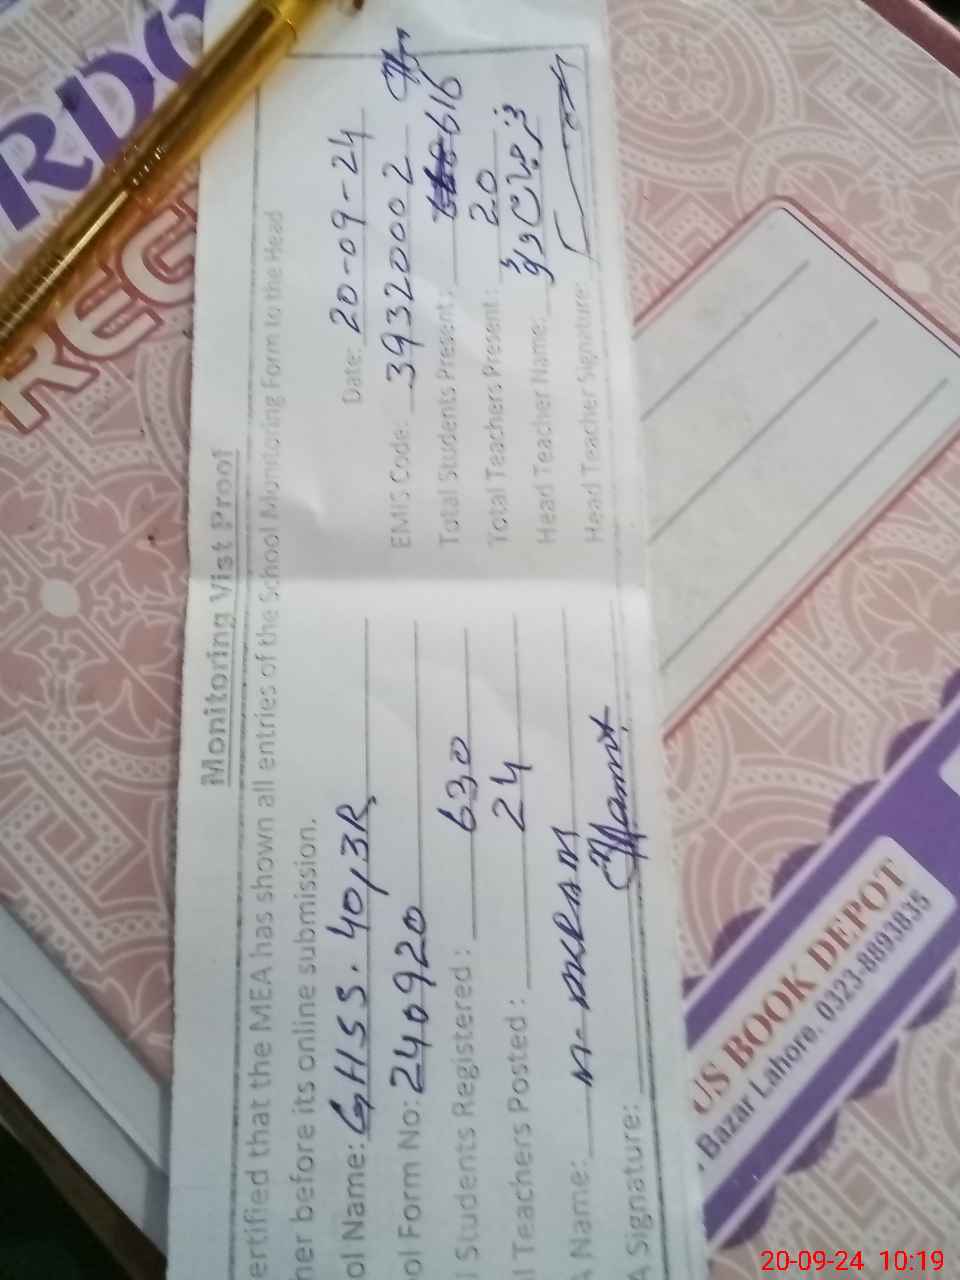 RDO
REG
Monitoring Vist Proof
ertified that the MEA has shown all entries of the School Monitoring Form to the Head
her before its online submission.
Date: 20-09-24
ol Name: GHSS. 40,3R
EMIS Code: 39320002
ol Form No: 240920
Total Students Present: 616
l Students Registered : 630
Total Teachers Present : 20
l Teachers Posted : 24
Head Teacher Name:
Name: M- AKRAM
Head Teacher Signature:
A Signature:
US BOOK DEPOT
Bazar Lahore. 0323-8893835
20-09-24 10:19